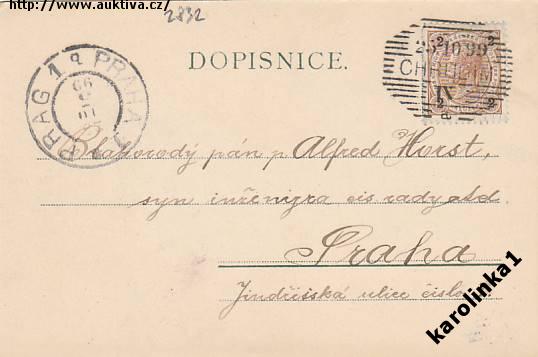 http://www.auktiva.cz/
2832
DOPISNICE.
25 10 99
CHRUDIM
PRAG 1 PRAHA 1
Blahorodý pán p Alfred Horst,
syn inženýra cis rady atd.
Praha
Jindřišská ulice číslo
karolinka1